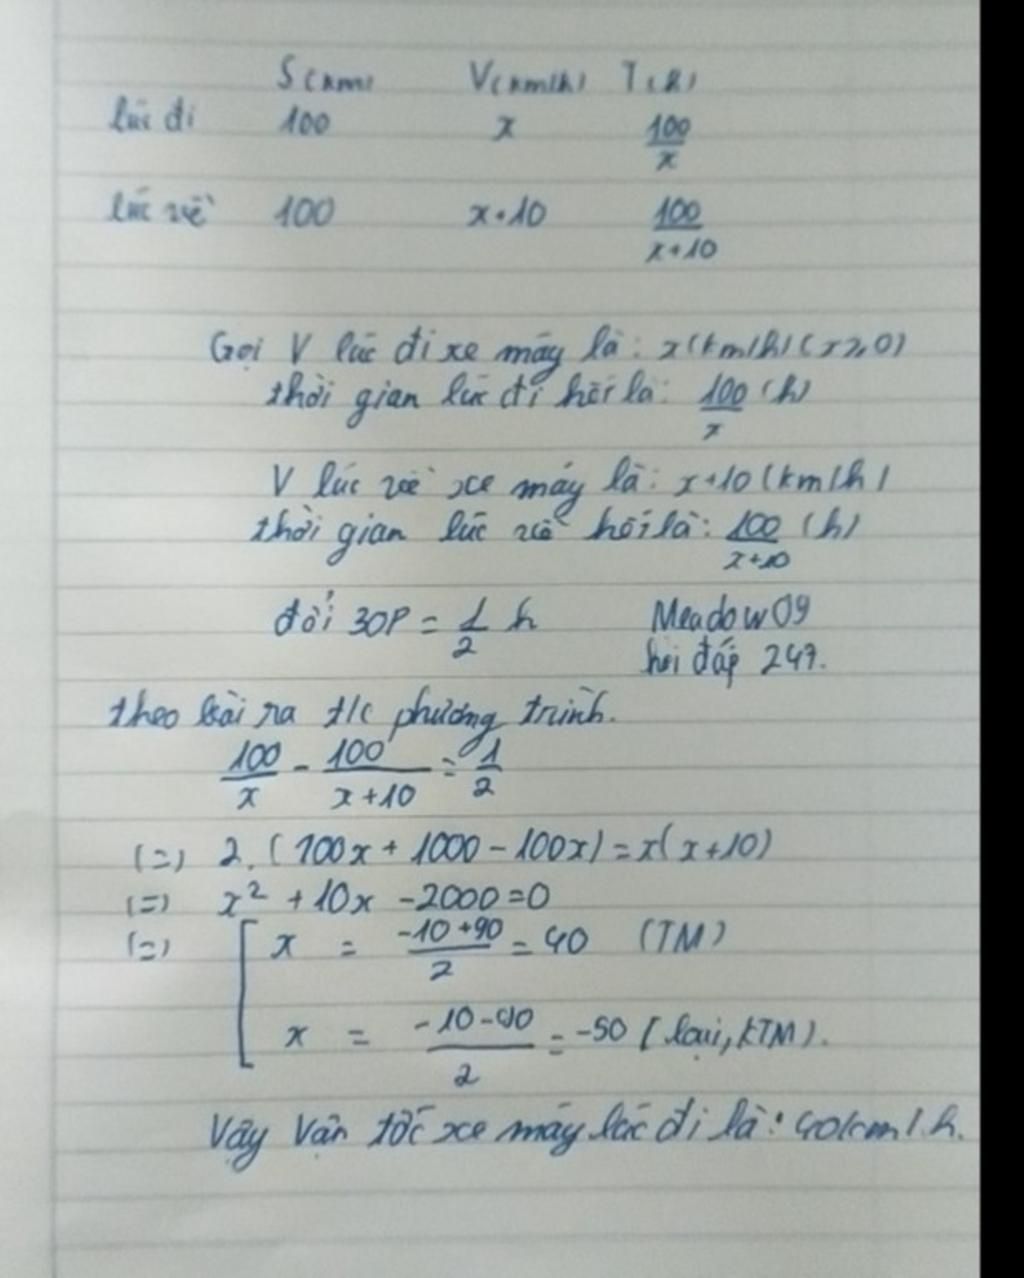 S(km) V(km/h) T(h)
lúc đi 100 x 100/x
lúc về 100 x+10 100/x+10
Gọi V lúc đi xe máy là: x(km/h) (x>,0)
thời gian lúc đi hết là: 100/x (h)
V lúc về xe máy là: x+10 (km/h)
thời gian lúc về hết là: 100/x+10 (h)
đổi 30P = 1/2 h Meadow09
hỏi đáp 247.
theo bài ra t/c phương trình.
100/x - 100/x+10 = 1/2
(=) 2.(100x + 1000 - 100x) = x(x+10)
(=) x² + 10x - 2000 = 0
(=) [ x = -10+90/2 = 40 (TM)
x = -10-90/2 = -50 (loại, KTM).
Vậy Vận tốc xe máy lúc đi là: 40km/h.